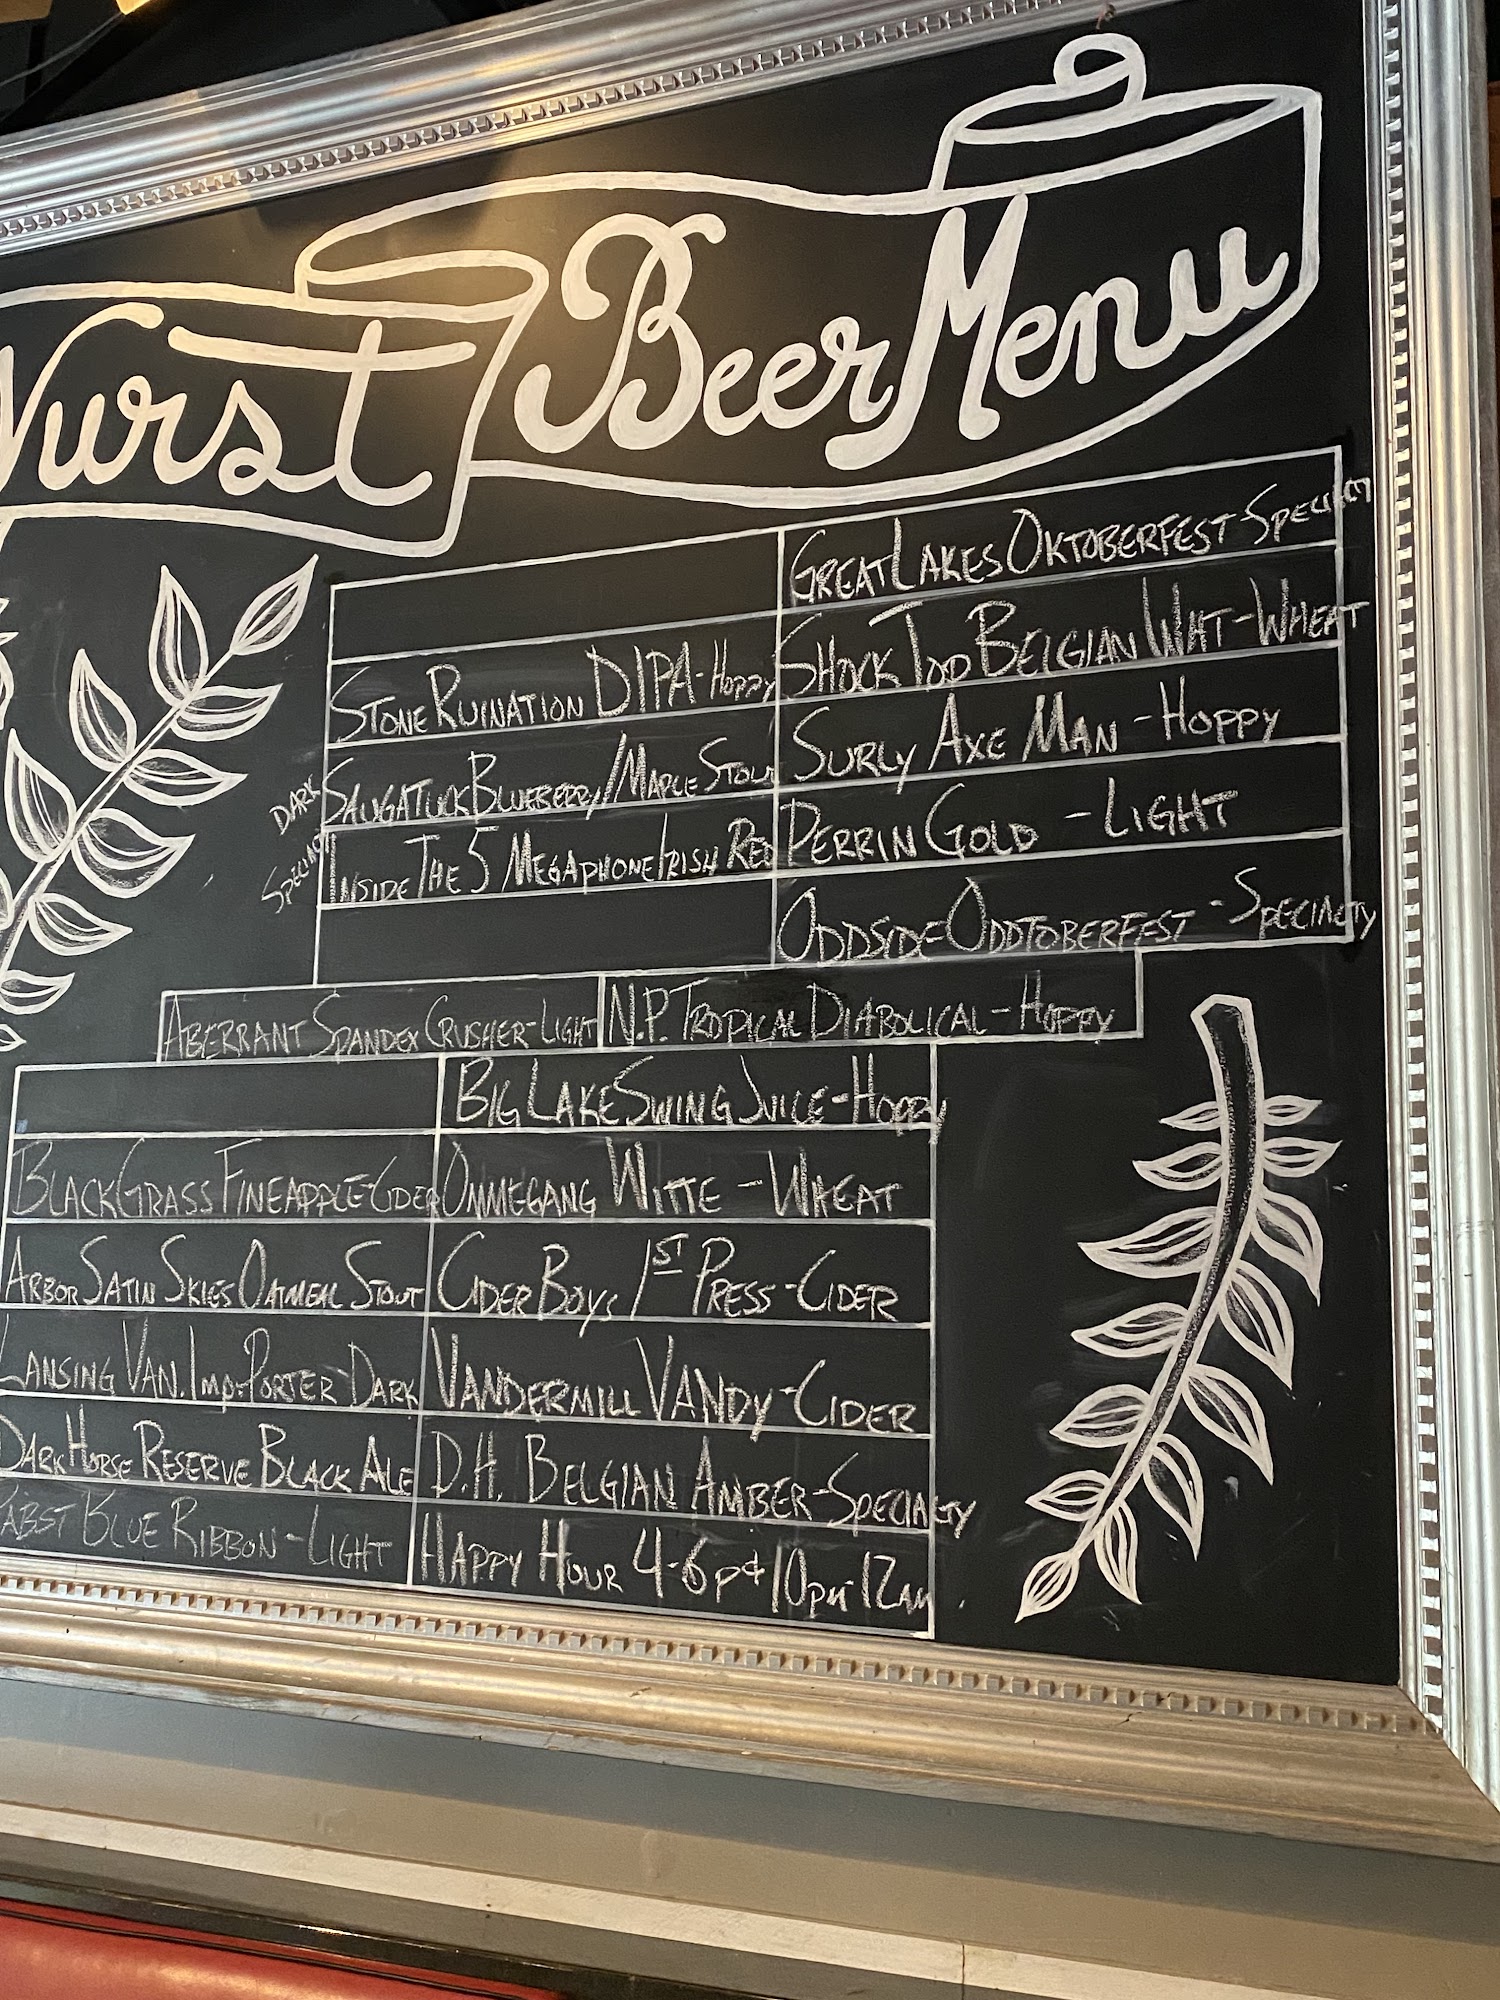 Wurst Beer Menu
Great Lakes Oktoberfest - Specialty
Stone Ruination DIPA - Hoppy
Shock Top Belgian Wht - Wheat
Dark Saugatuck Blueberry/Maple Stout
Surly Axe Man - Hoppy
Specialty Inside The 5 Megaphone Irish Red
Perrin Gold - Light
Oddside Oddtoberfest - Specialty
Aberrant Spandex Crusher - Light
N.P. Tropical Diabolical - Hoppy
Big Lake Swing Juice - Hoppy
Blackgrass Fineapple - Cider
Ommegang Witte - Wheat
Arbor Satin Skies Oatmeal Stout
Cider Boys 1st Press - Cider
Lansing Van. Imp. Porter - Dark
Vandermill Vandy - Cider
Dark Horse Reserve Black Ale
D.H. Belgian Amber - Specialty
Pabst Blue Ribbon - Light
Happy Hour 4-6p & 10pm-12am